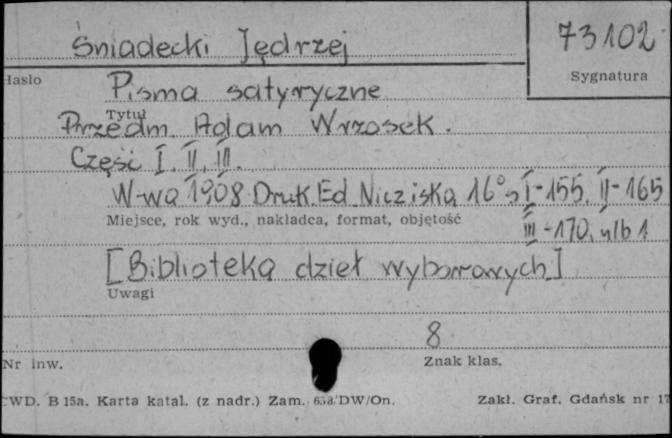 Śniadecki Jędrzej
73102
Hasło
Sygnatura
Pisma satyryczne
Tytuł
Przedm. Adam Wrzosek.
Część I, II, III.
W-wa 1908 Druk. Ed Nicz i ska 16° s I-155, II-165
Miejsce, rok wyd., nakładca, format, objętość
III-170, nlb 1
[Biblioteka dzieł wyborowych]
Uwagi
8
Nr inw.
Znak klas.
WD. B 15a. Karta katal. (z nadr.) Zam. /DW/On.
Zakł. Graf. Gdańsk nr 17